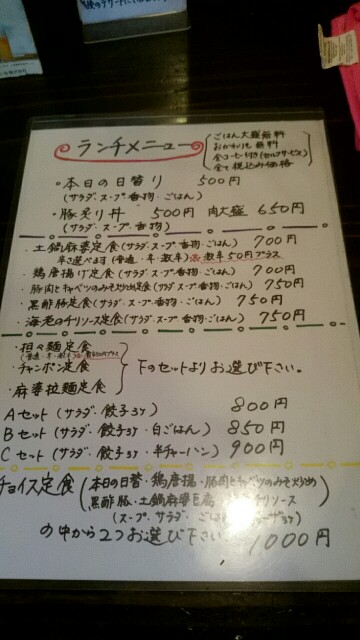 ランチメニュー
ごはん大盛無料
おかわりも無料
全コーヒー付き(セルフサービス)
全て税込み価格
・本日の日替り 500円
(サラダ・スープ・香物・ごはん)
・豚炙り丼 500円 肉大盛 650円
(サラダ・スープ・香物)
・土鍋麻婆定食(サラダ・スープ・香物・ごはん) 700円
辛さ選べます(普通・辛・激辛)※激辛50円プラス
・鶏唐揚げ定食(サラダ・スープ・香物・ごはん) 700円
・豚肉とキャベツのみそ炒め定食(サラダ・スープ・香物・ごはん) 750円
・黒酢豚定食(サラダ・スープ・香物・ごはん) 750円
・海老のチリソース定食(サラダ・スープ・香物・ごはん) 750円
・担々麺定食
・チャンポン定食
・麻婆拉麺定食
下のセットよりお選び下さい。
Aセット(サラダ・餃子3ケ) 800円
Bセット(サラダ・餃子3ケ・白ごはん) 850円
Cセット(サラダ・餃子3ケ・半チャーハン) 900円
チョイス定食(本日の日替・鶏唐揚・豚肉とキャベツのみそ炒め
黒酢豚・土鍋麻婆豆腐 チリソース
(スープ・サラダ・ごはん
の中から2つお選び下さい 1000円